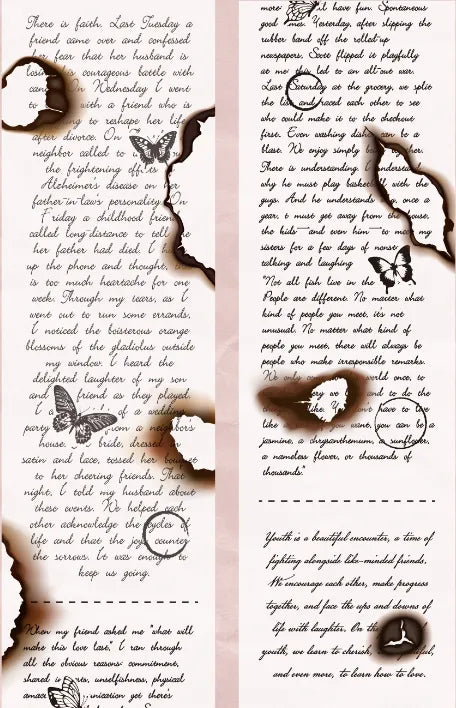 There is faith. Last Tuesday a
friend came over and confessed
her fear that her husband is
losing courageous battle with
On Wednesday I went
to with a friend who is
to reshape her life
after divorce. On
neighbor called to
the frightening effects
Alzheimer's disease on her
father-in-law's personality. On
Friday a childhood friend
called long-distance to tell me
her father had died. I
up the phone and thought,
is too much heartache for one
week. Through my tears, as I
went out to run some errands,
I noticed the boisterous orange
blossoms of the gladiolus outside
my window. I heard the
delighted laughter of my son
and friend as they played.
I of a wedding
party from a neighbor's
house. bride, dressed
satin and lace, tossed her bouquet
to her cheering friends. That
night, I told my husband about
these events. We helped each
other acknowledge the cycles of
life and that the joys counter
the sorrows. It was enough to
keep us going.
When my friend asked me "what will
make this love last," I ran through
all the obvious reasons: commitment,
shared unselfishness, physical
yet there's
more. have fun. Spontaneous
good times. Yesterday, after slipping the
rubber band off the rolled-up
newspapers, Scott flipped it playfully
at me this led to an all-out war.
Last Saturday at the grocery, we split
the list and raced each other to see
who could make it to the checkout
first. Even washing dishes can be a
blast. We enjoy simply being together.
There is understanding. I understand
why he must play basketball with the
guys. And he understands once a
year, I must get away from the house,
the kids—and even him—to meet my
sisters for a few days of nonstop
talking and laughing
"Not all fish live in the
People are different. No matter what
kind of people you meet, it's not
unusual. No matter what kind of
people you meet, there will always be
people who make irresponsible remarks.
We only world once, to
and to do the
like. You don't have to live
like want, you can be a
jasmine, a chrysanthemum, a sunflower,
a nameless flower, or thousands of
thousands."
Youth is a beautiful encounter, a time of
fighting alongside like-minded friends.
We encourage each other, make progress
together, and face the ups and downs of
life with laughter. On the
youth, we learn to cherish,
and even more, to learn how to love.